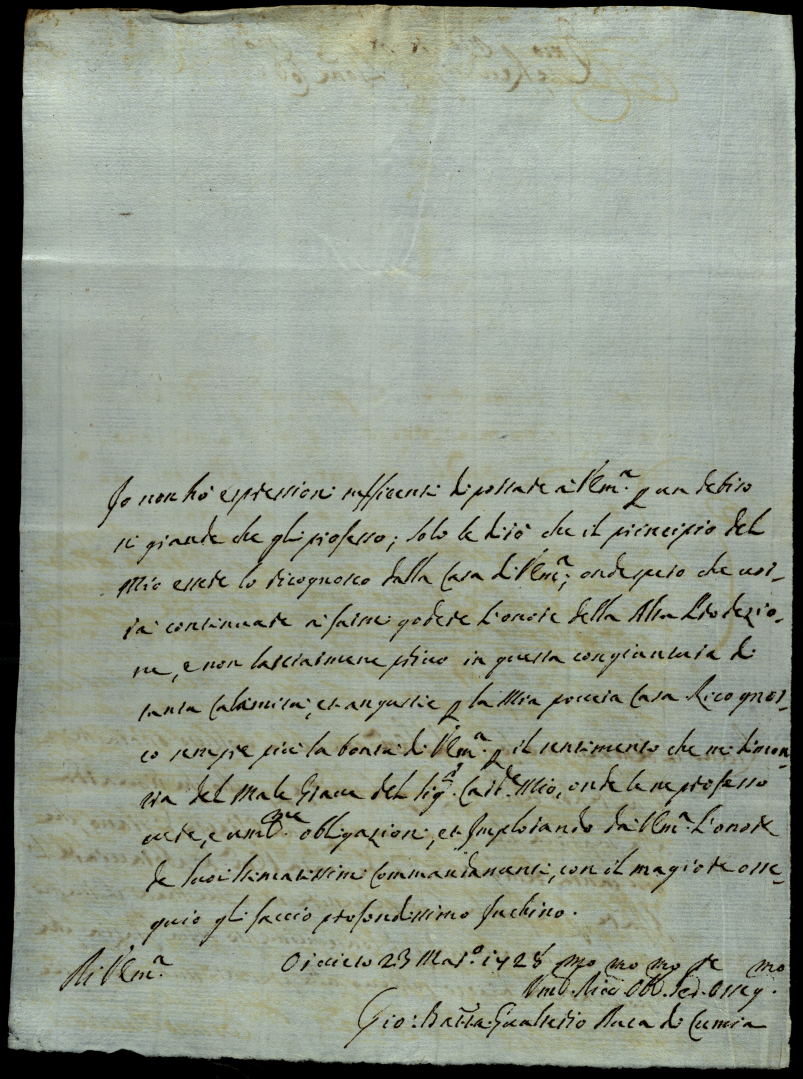 Io non hò espressioni sufficenti di portare à V. Em.ᵃ p un debito
si grande che gli professo; solo le dirò che il principio del
Mio essere lo ricognosco dalla Casa di V. Em.ᵃ; onde spero che vor-
rà continuare à farmi godere l'onore della Alta Protezio-
ne, e non lasciarmene privo in questa congiuntura di
tanta Calamità, et angustie p la Mia povera Casa. Ricognos-
co sempre più la bontà di V. Em.ᵃ p il sentimento che ne dimos-
tra del Male Grave del Sig.ʳ Card.ˡᵉ Mio, onde le ne professo
vere, e um.ᵐᵉ obligazioni, et Implorando da V. Em.ᵃ l'onore
de suoi stimatissimi Commandamenti, con il magiore osse-
quio gli faccio profondissimo Inchino.
Di V. Em.ᵃ
Orvieto 23 Mar.º 1728
Um.ᵐᵒ Obb.ᵐᵒ Ser.ʳᵉ Osseq.ᵐᵒ
Gio: Batta Gualterio Duca di Cumia